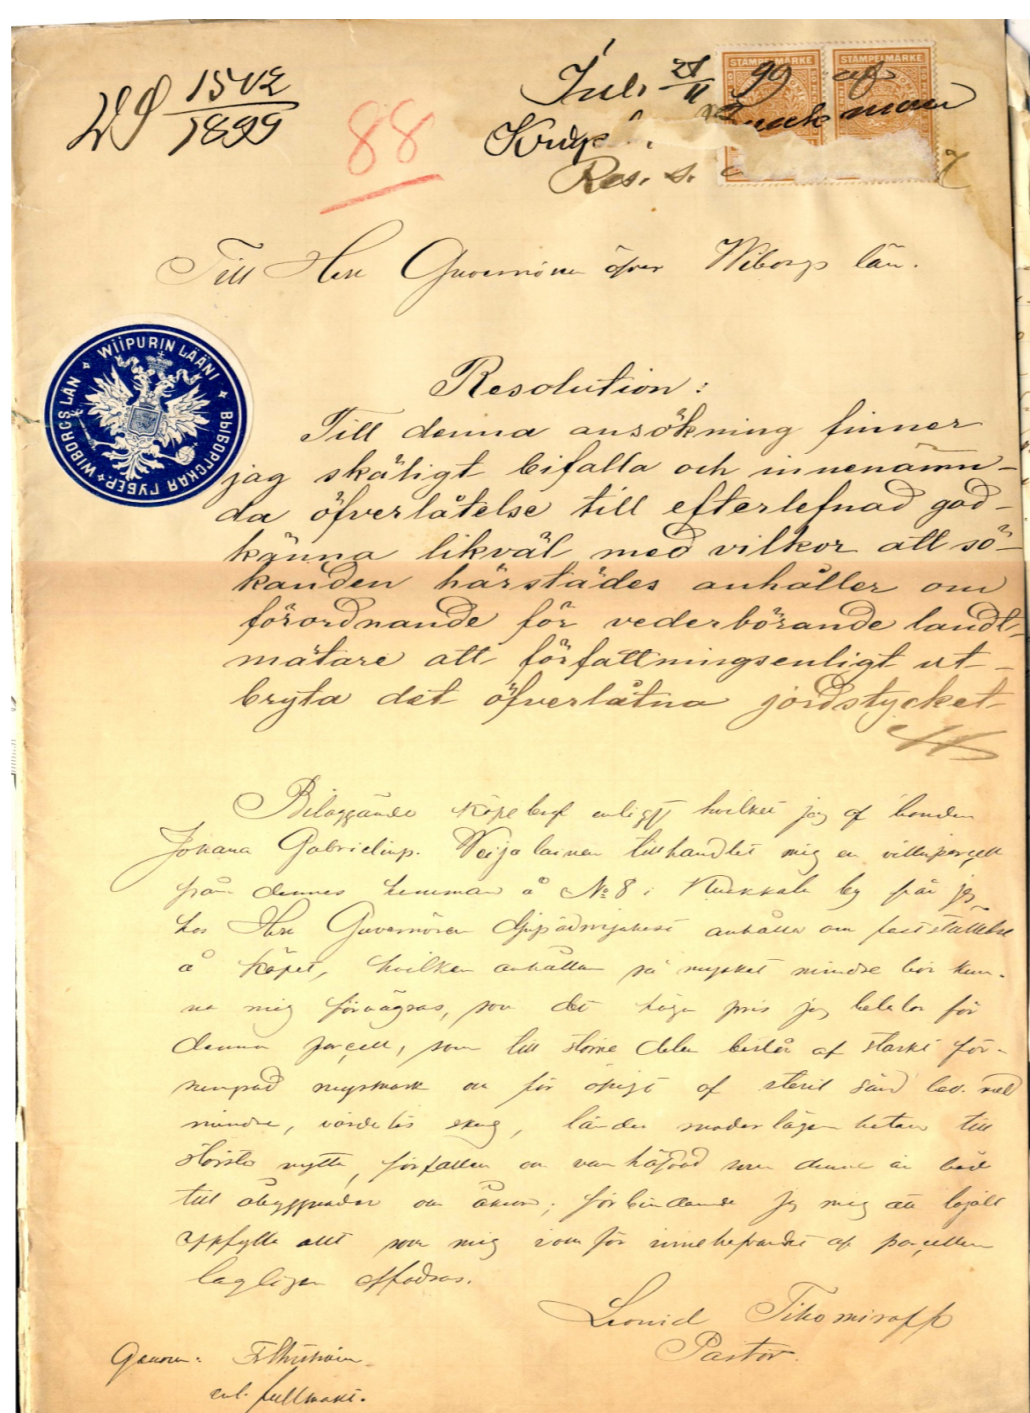 WD 1542/1899
88
STÄMPELMÄRKE STÄMPELMÄRKE
Inl. 21/11 99 af
Res. s.
Till Herr Guvernören öfver Wiborgs län.
WIIPURIN LÄÄNI ВЫБОРГСКАЯ ГУБЕР. WIBORGS LÄN
Resolution:
Till denna ansökning finner
jag skäligt bifalla och innenämn-
da öfverlåtelse till efterlefnad god-
känna likväl med vilkor att sö-
kanden härstädes anhåller om
förordnande för vederbörande landt-
mätare att författningsenligt ut-
bryta det öfverlåtna jordstycket
Biläggande köpebref enligt hvilket jag af bonden
Johana Gabrielinp. Weijalainen tillhandlat mig en villaparcell
från dennes hemman å № 8 i Kuokkala by får jag
hos Herr Guvernören djupödmjukast anhålla om fastställelse
å köpet, hvilken anhållan så mycket mindre bör kun-
na mig förvägras, som det höga pris jag betalar för
denna parcell, som till större delen består af starkt för-
sumpad myrmark och för öfrigt af steril sand bev. med
mindre, värdelös skog, länder moderlägenheten till
största nytta, förfallen och vanhäfdad som denne är både
till åbyggnader och åkrar; förbindande jag mig att lojalt
uppfylla allt som mig som för innehafvandet af parcellen
lagligen affodras.
Leonid Tihomiroff
Pastor.
Genom:
enl. fullmakt.